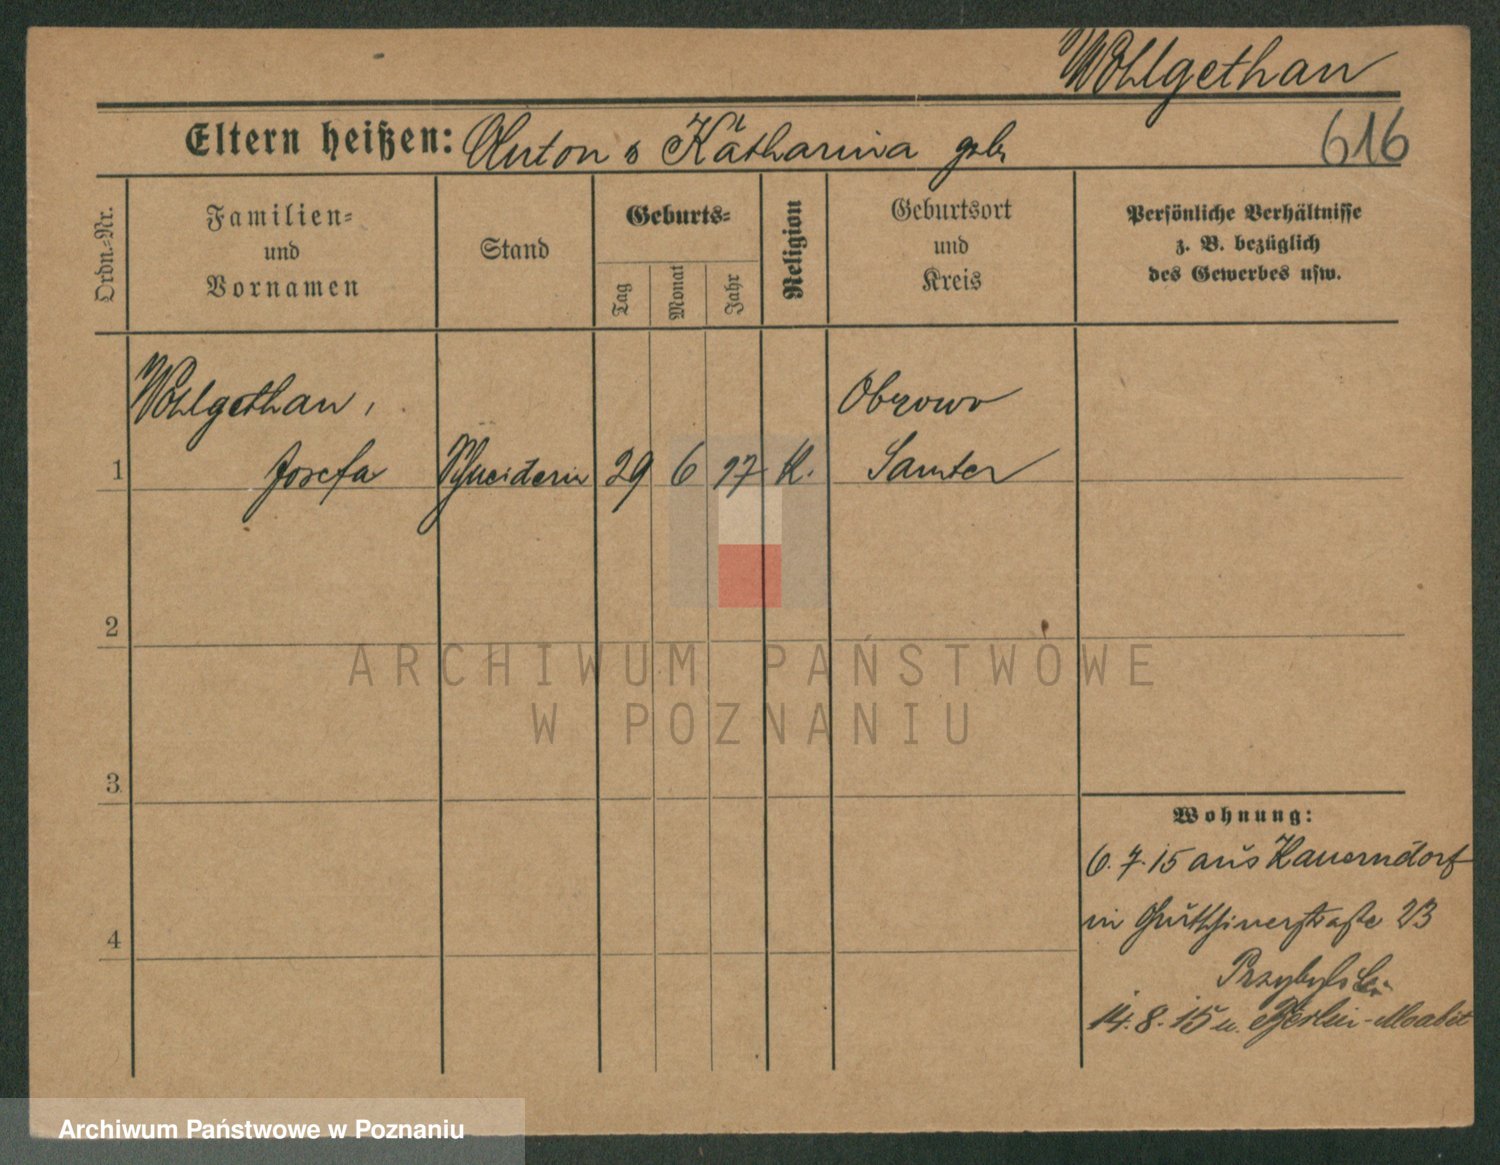 Wohlgethan
Eltern heißen: Anton & Katharina geb.
616
Ordn.-Nr.
Familien-
und
Vornamen
Stand
Geburts-
Tag
Monat
Jahr
Religion
Geburtsort
und
Kreis
Persönliche Verhältnisse
z. B. bezüglich
des Gewerbes usw.
Wohlgethan,
Obrowo
1 Josefa Schneiderin 29 6 97 K. Samter
2
ARCHIWUM PAŃSTWOWE
W POZNANIU
3
Wohnung:
6.7.15 aus Hauerndorf
4
in 23
Przybylski
14.8.15 n. Berlin-Moabit
Archiwum Państwowe w Poznaniu